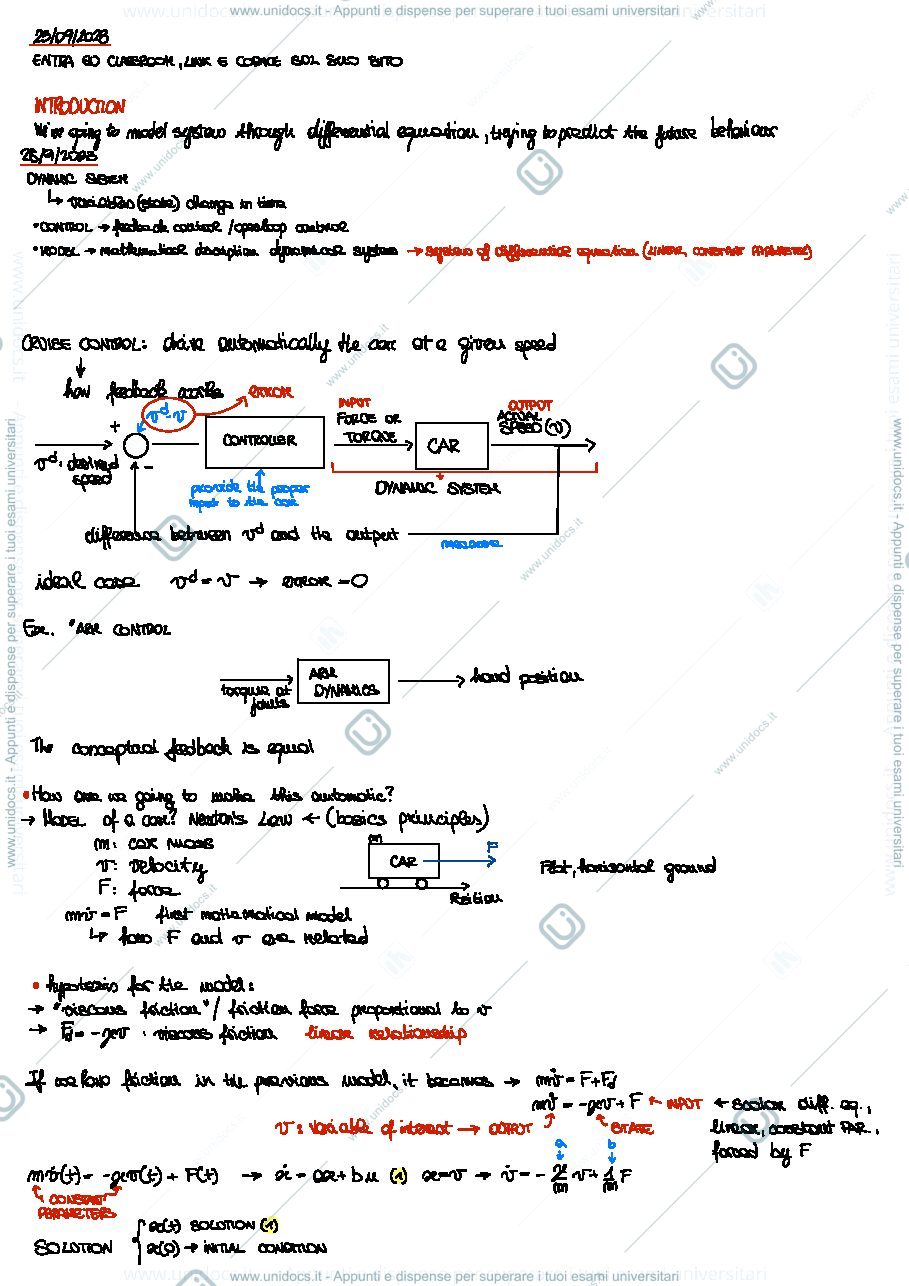 www.unidocs.it - Appunti e dispense per superare i tuoi esami universitari
INTRODUCTION
We're going to model system through differential equation, trying to predict the future behaviour
DYNAMIC SYSTEM
↳ variables (state) change in time
• CONTROL → feedback control / openloop control
• MODEL → mathematical description dynamical system → system of differential equation (LINEAR, CONSTANT PARAMETER)
CRUISE CONTROL: drive automatically the car at a given speed
↓
how feedback works
vᵈ-v
ERROR
INPUT
FORCE OR
TORQUE
OUTPUT
ACTUAL
SPEED (v)
+
CONTROLLER
CAR
vᵈ: desired
speed
-
provide the proper
input to the car
DYNAMIC SYSTEM
difference between vᵈ and the output
measure
ideal case vᵈ = v → ERROR = 0
ARM CONTROL
torque at
joints
ARM
DYNAMICS
hand position
The conceptual feedback is equal
• How are we going to make this automatic?
→ MODEL of a car? Newton's Law ← (basics principles)
m: car mass
v: velocity
F: force
m
CAR
F
Position
Flat, horizontal ground
mv̇ = F first mathematical model
↳ how F and v are related
• hypotesis for the model:
→ "viscous friction" / friction force proportional to v
→ = -γv : viscous friction linear relationship
If we have friction in the previous model, it becomes →
mv̇ = -γv + F ← INPUT ← scalar diff. eq.,
v: variable of interest → OUTPUT STATE linear, constant PAR.,
forced by F
a b
mv̇(t) = -γv(t) + F(t) → ẋ = ax + bu (1) x=v → v̇ = - γ/m v + 1/m F
CONSTANT
PARAMETERS
SOLUTION
x(t) SOLUTION (1)
x(0) → INITIAL CONDITION
www.unidocs.it - Appunti e dispense per superare i tuoi esami universitari